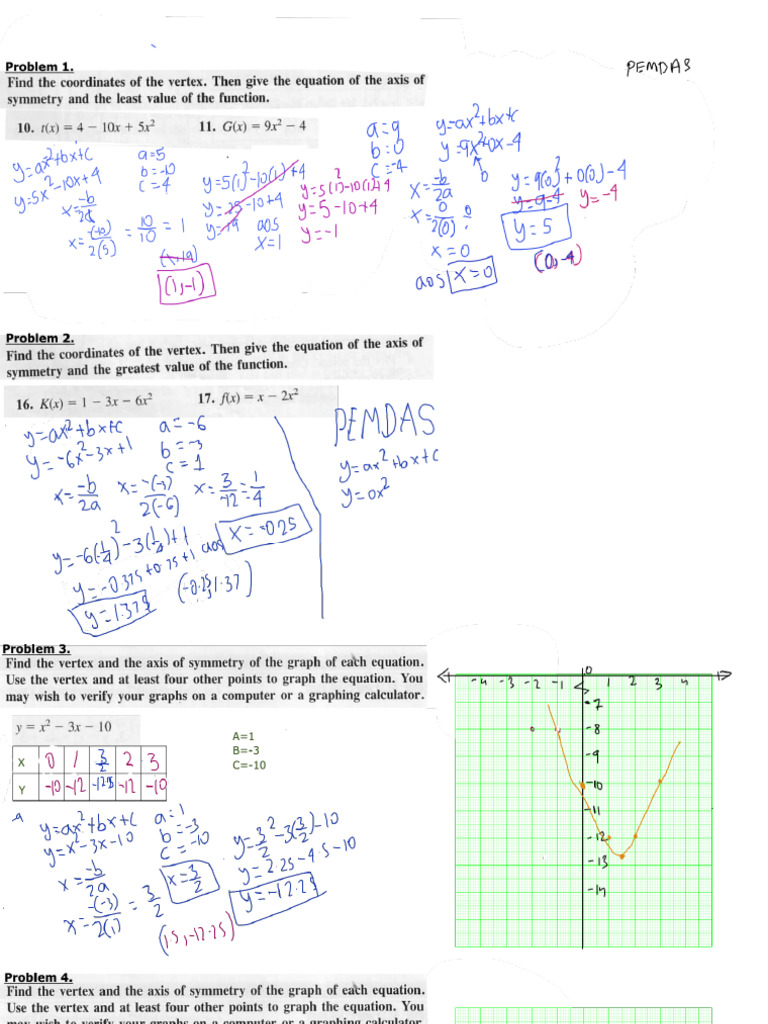 PEMDAS
Problem 1.
Find the coordinates of the vertex. Then give the equation of the axis of
symmetry and the least value of the function.
10. t(x) = 4 − 10x + 5x²
11. G(x) = 9x² − 4
y=ax²+bx+c
y=5x²-10x+4
a=5
b=-10
c=4
x=-b/2a
x=-(-10)/2(5) = 10/10 = 1
y=5(1)²-10(1)+4
y=25-10+4
y=19
aos
x=1
(1,19)
(1,-1)
y=5(1)²-10(1)+4
y=5-10+4
y=-1
a=9
b=0
c=-4
y=ax²+bx+c
y=9x²+0x-4
x=-b/2a
x=0/2(0)
x=0
aos x=0
y=9(0)²+0(0)-4
y=9-4
y=-4
y=5
(0,-4)
Problem 2.
Find the coordinates of the vertex. Then give the equation of the axis of
symmetry and the greatest value of the function.
16. K(x) = 1 − 3x − 6x²
17. f(x) = x − 2x²
y=ax²+bx+c
y=-6x²-3x+1
a=-6
b=-3
c=1
x=-b/2a x=-(-3)/2(-6) x=3/-12=1/4
y=-6(1/4)²-3(1/4)+1
aos x=-025
y=-0.375+0.75+1
y=1.375
PEMDAS
y=ax²+bx+c
y=0x²
Problem 3.
Find the vertex and the axis of symmetry of the graph of each equation.
Use the vertex and at least four other points to graph the equation. You
may wish to verify your graphs on a computer or a graphing calculator.
y = x² − 3x − 10
A=1
B=-3
C=-10
X 0 1 3/2 2 3
Y -10 -12 -12.25 -12 -10
y=ax²+bx+c
y=x²-3x-10
a=1
b=-3
c=-10
x=-b/2a
x=-(-3)/2(1) = 3/2
x=3/2
y=3/2²-3(3/2)-10
y=2.25-4.5-10
y=-12.25
(1.5,-12.25)
0
-4 -3 -2 -1 1 2 3 4
-7
-8
-9
-10
-11
-12
-13
-14
Problem 4.
Find the vertex and the axis of symmetry of the graph of each equation.
Use the vertex and at least four other points to graph the equation. You
may wish to verify your graphs on a computer or a graphing calculator.